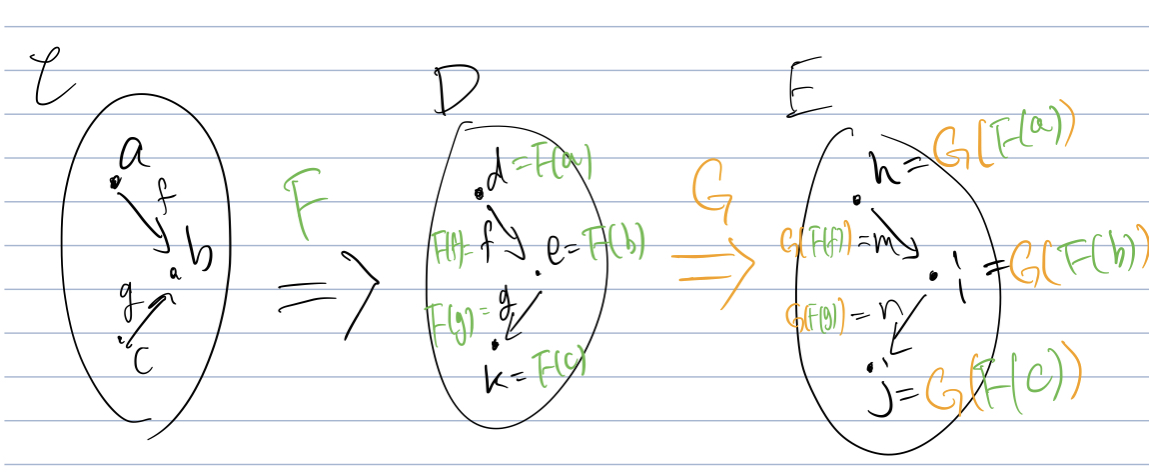 C D E
a
f
b
g
a
C
F
d = F(a)
F(f) = f
e = F(b)
F(g) = g
k = F(c)
G
h = G(F(a))
G(F(f)) = m
i = G(F(b))
G(F(g)) = n
j = G(F(c))